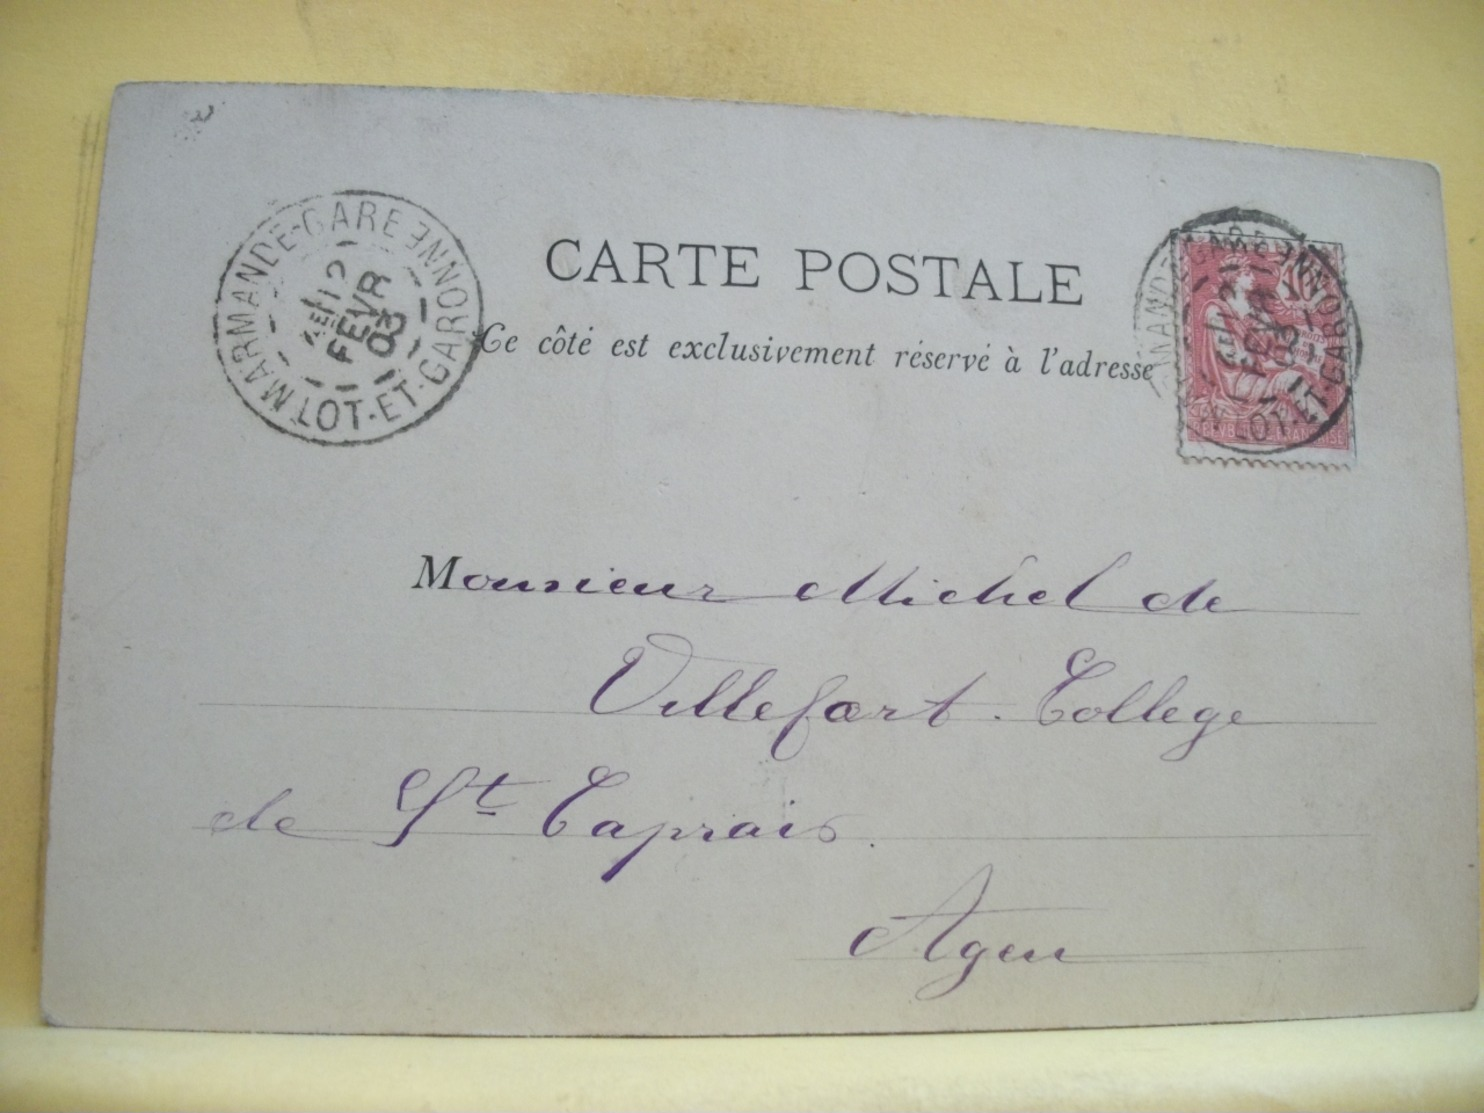 CARTE POSTALE
Ce côté est exclusivement réservé à l'adresse
MARMANDE-GARE LOT-ET-GARONNE
12
FEVR
03
MARMANDE-GARE LOT-ET-GARONNE
12
FEVR
03
10
REPUBLIQUE FRANCAISE
Monsieur Michel de
Villefort. College
de St Caprais.
Agen